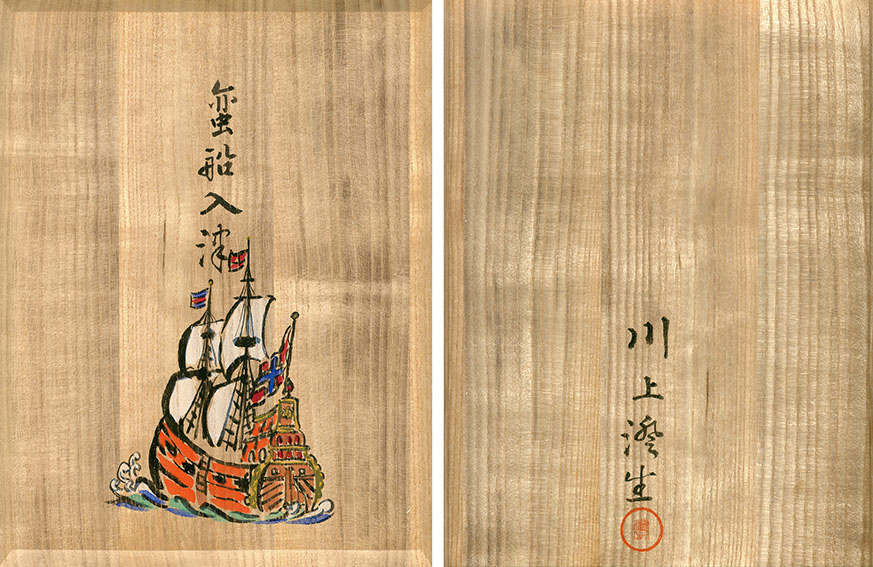 蛮船入津
川上澄生